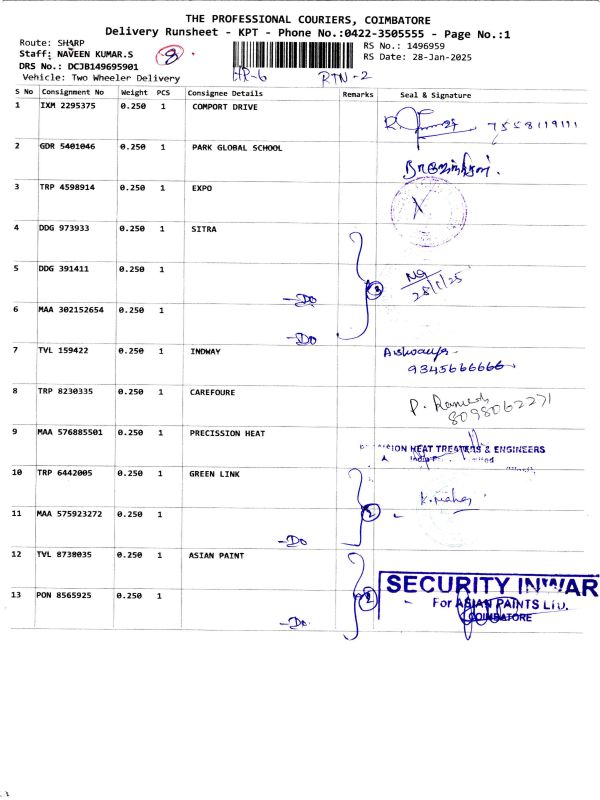 THE PROFESSIONAL COURIERS, COIMBATORE
Delivery Runsheet - KPT - Phone No.:0422-3505555 - Page No.:1
Route: SHARP
Staff: NAVEEN KUMAR.S
DRS No.: DCJB149695901
Vehicle: Two Wheeler Delivery
8
RS No.: 1496959
RS Date: 28-Jan-2025
RTN-2
S No Consignment No Weight PCS Consignee Details Remarks Seal & Signature
1 IXM 2295375 0.250 1 COMPORT DRIVE 7558119111
2 GDR 5401046 0.250 1 PARK GLOBAL SCHOOL
3 TRP 4598914 0.250 1 EXPO
4 DDG 973933 0.250 1 SITRA
5 DDG 391411 0.250 1 3 28/1/25
-Do
6 MAA 302152654 0.250 1
-Do
7 TVL 159422 0.250 1 INDWAY Aishwarya
9345666666
8 TRP 8230335 0.250 1 CAREFOURE P. Ramesh
8098062271
9 MAA 576885501 0.250 1 PRECISSION HEAT
HEAT TREATERS & ENGINEERS
10 TRP 6442005 0.250 1 GREEN LINK
11 MAA 575923272 0.250 1 2
-Do
12 TVL 8738035 0.250 1 ASIAN PAINT
SECURITY INWAR
13 PON 8565925 0.250 1 2 For ASIAN PAINTS LTD.
COIMBATORE
-Do